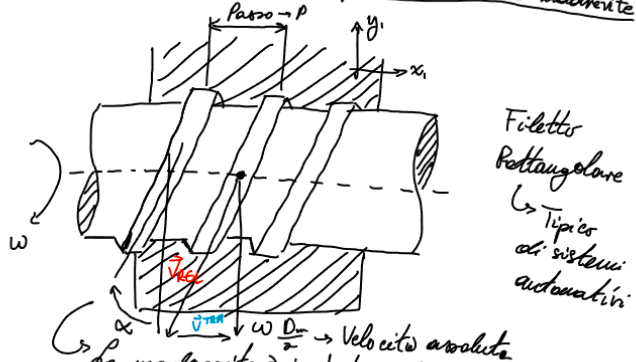 Passo → P
y₁
x₁
Filetto
Rettangolare
↳ Tipico
di sistemi
automativi
ω
V REL
V TRA
α
ω Dm/2 → Velocità assoluta